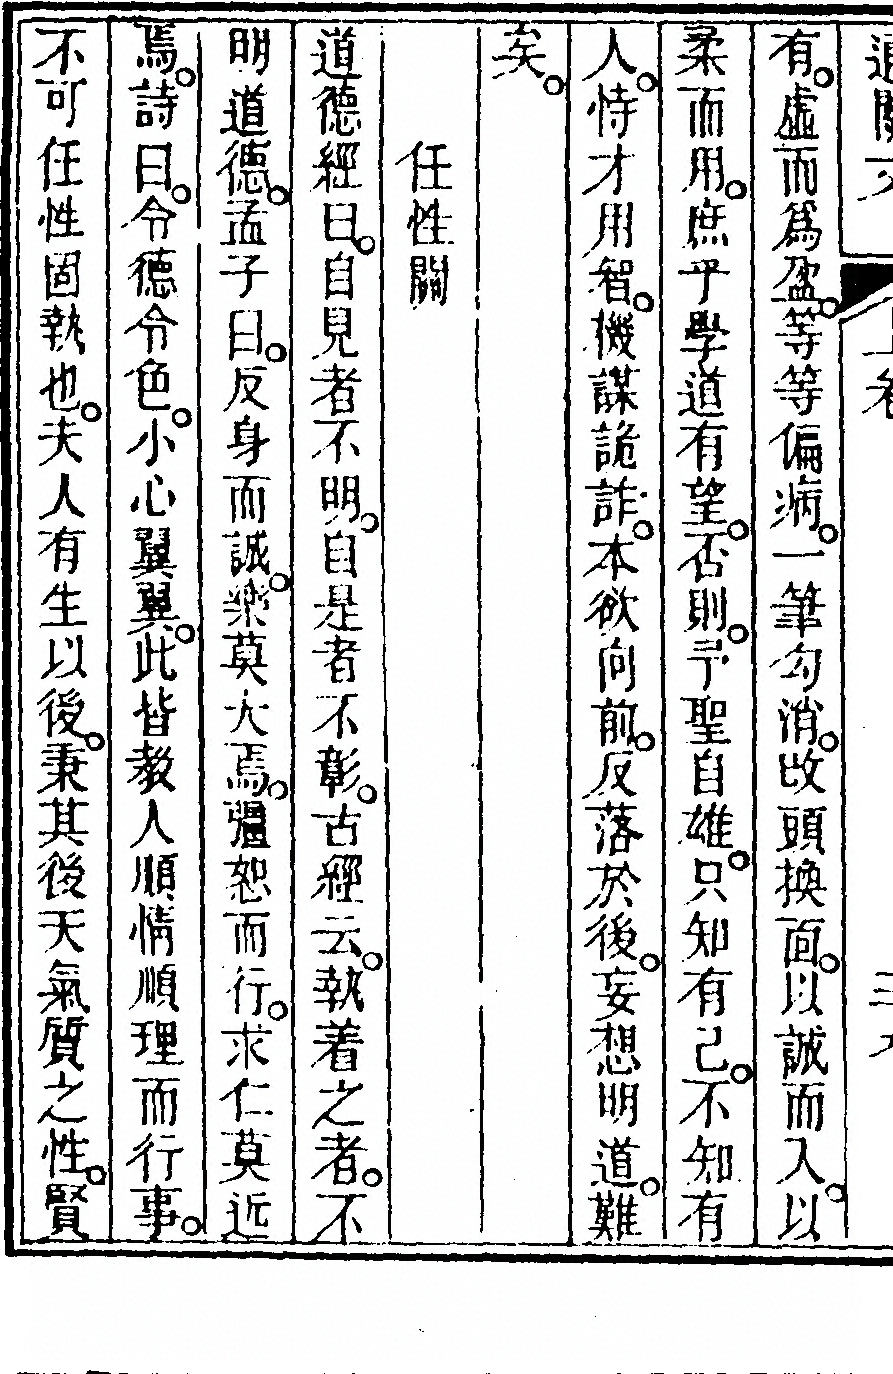 有。虛而爲盈。等等偏病。一筆勾消。改頭換面。以誠而入。以
柔而用。庶乎學道有望。否則予聖自雄。只知有己。不知有
人。恃才用智。機謀詭詐。本欲向前。反落於後。妄想明道。難
矣。
任性關
道德經曰。自見者不明。自是者不彰。古經云。執着之者。不
明道德。孟子曰。反身而誠。樂莫大焉。彊恕而行。求仁莫近
焉。詩曰。令德令色。小心翼翼。此皆教人順情順理而行事。
不可任性固執也。夫人有生以後。秉其後天氣質之性。賢